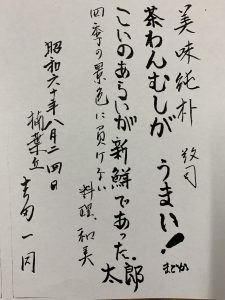 美味純朴
敬司
茶わんむしが
うまい！
まどか
こいのあらいが新鮮であった。
太郎
四季の景色に負けない
料理、和美
昭和六十年八月二四日
一同